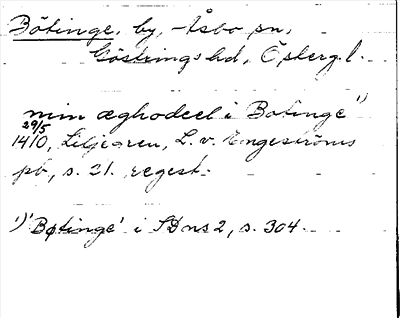 Bötinge, by, Åsbo sn,
Göstrings hd, Östergl.
min æghodeel i Botinge ¹)
29/5
1410, Liljegren, L. v. Engeströms
pb, s. 21. regest.
¹) 'Bøtinge' i SD ns 2, s. 304.